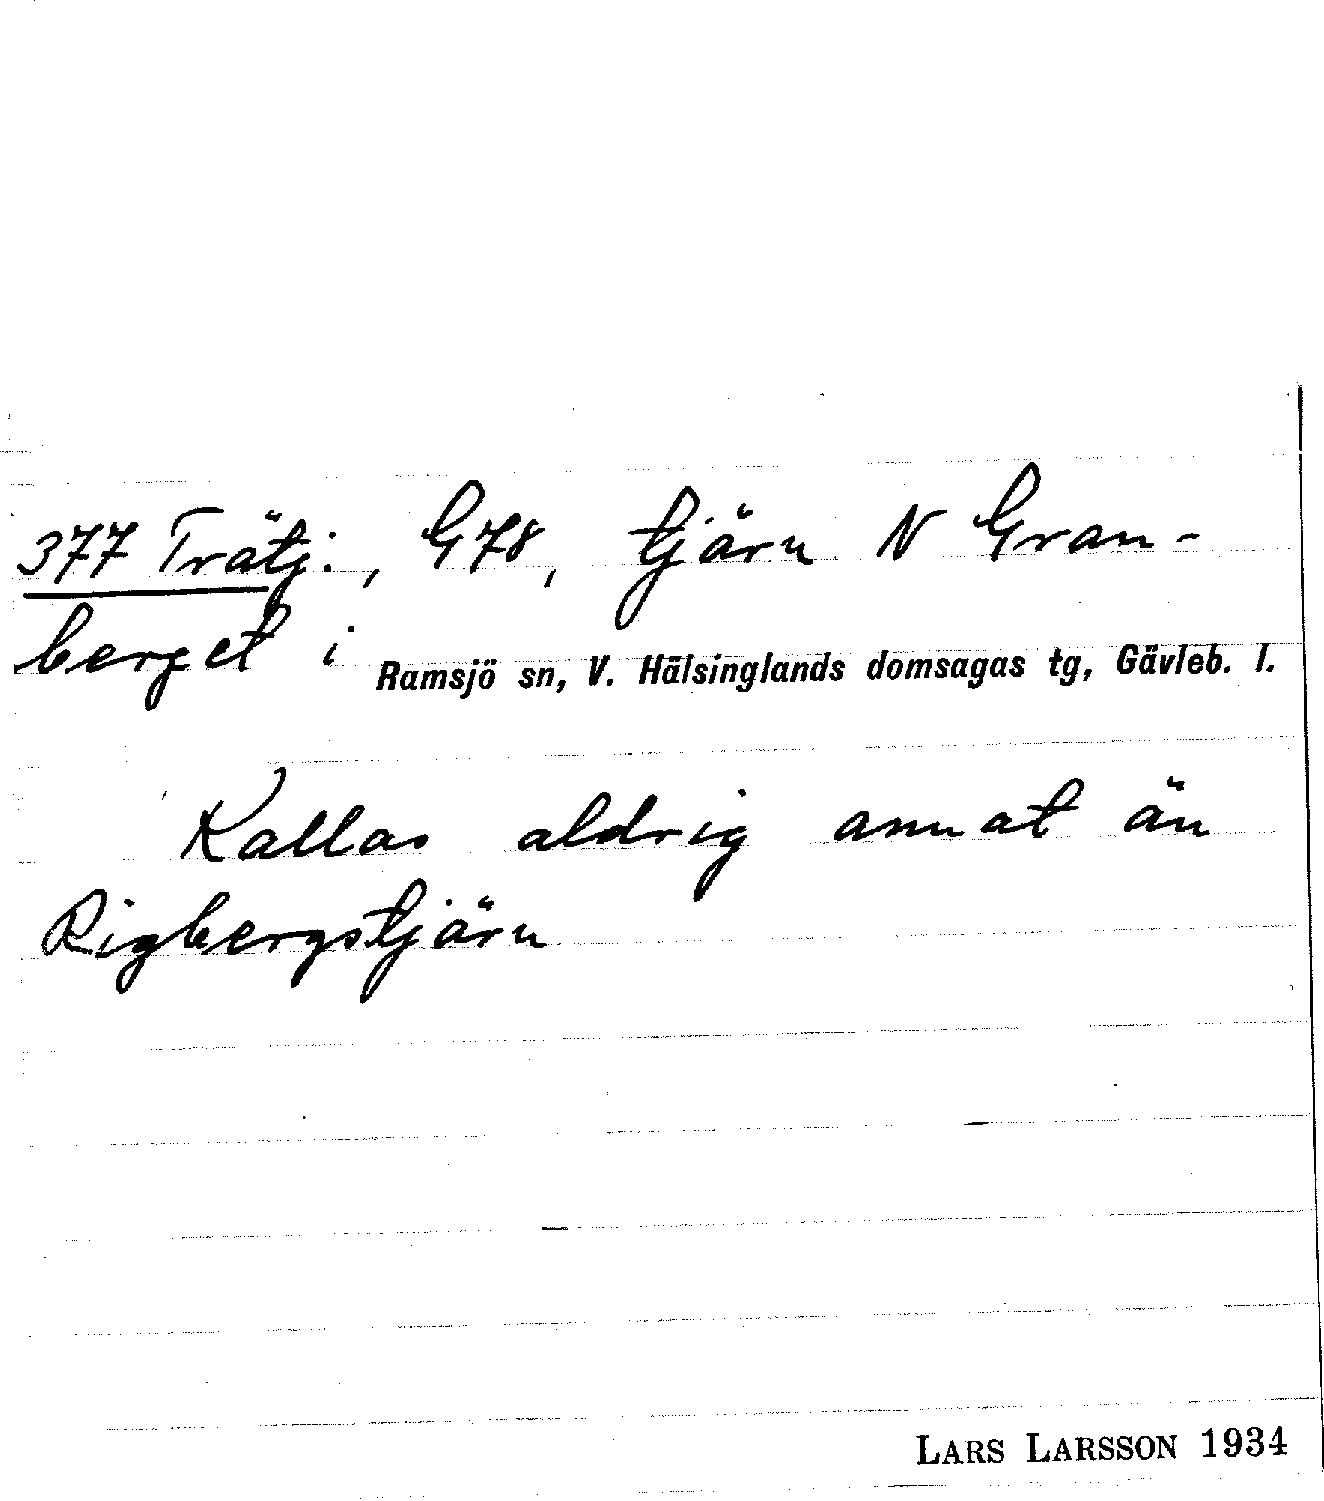 377 Trätj:, G78, tjärn N Gran-
berget i Ramsjö sn, V. Hälsinglands domsagas tg, Gävleb. l.
Kallas aldrig annat än
Rigbergstjärn
LARS LARSSON 1934